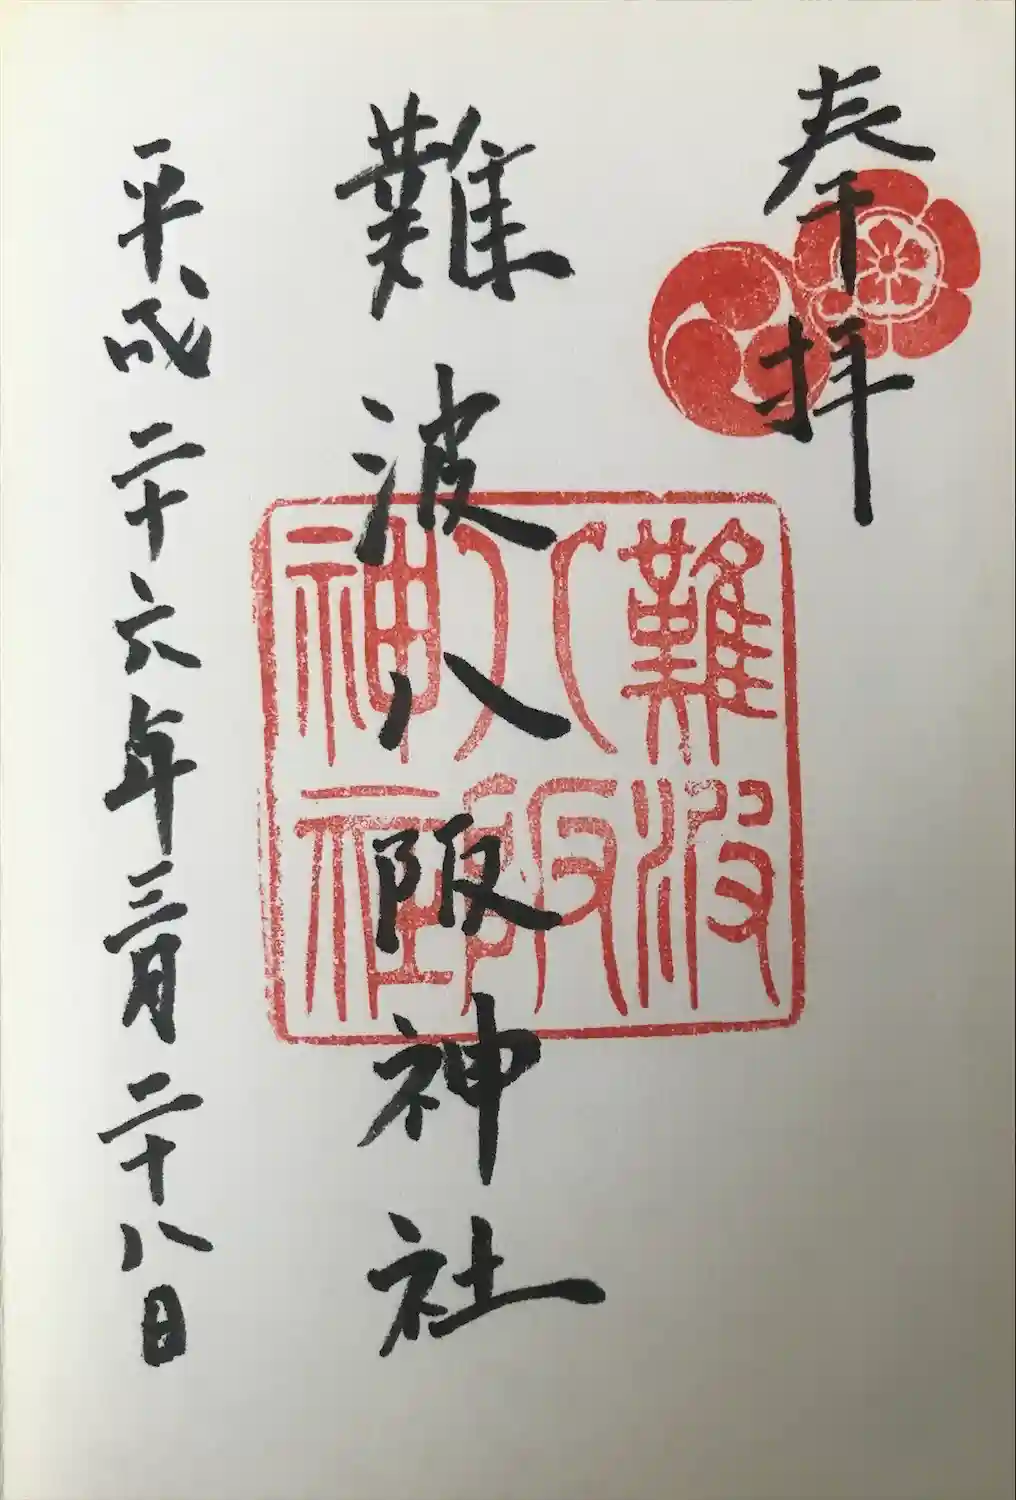 奉拝
難波八阪神社
平成二十六年三月二十八日
難波
八阪
神社